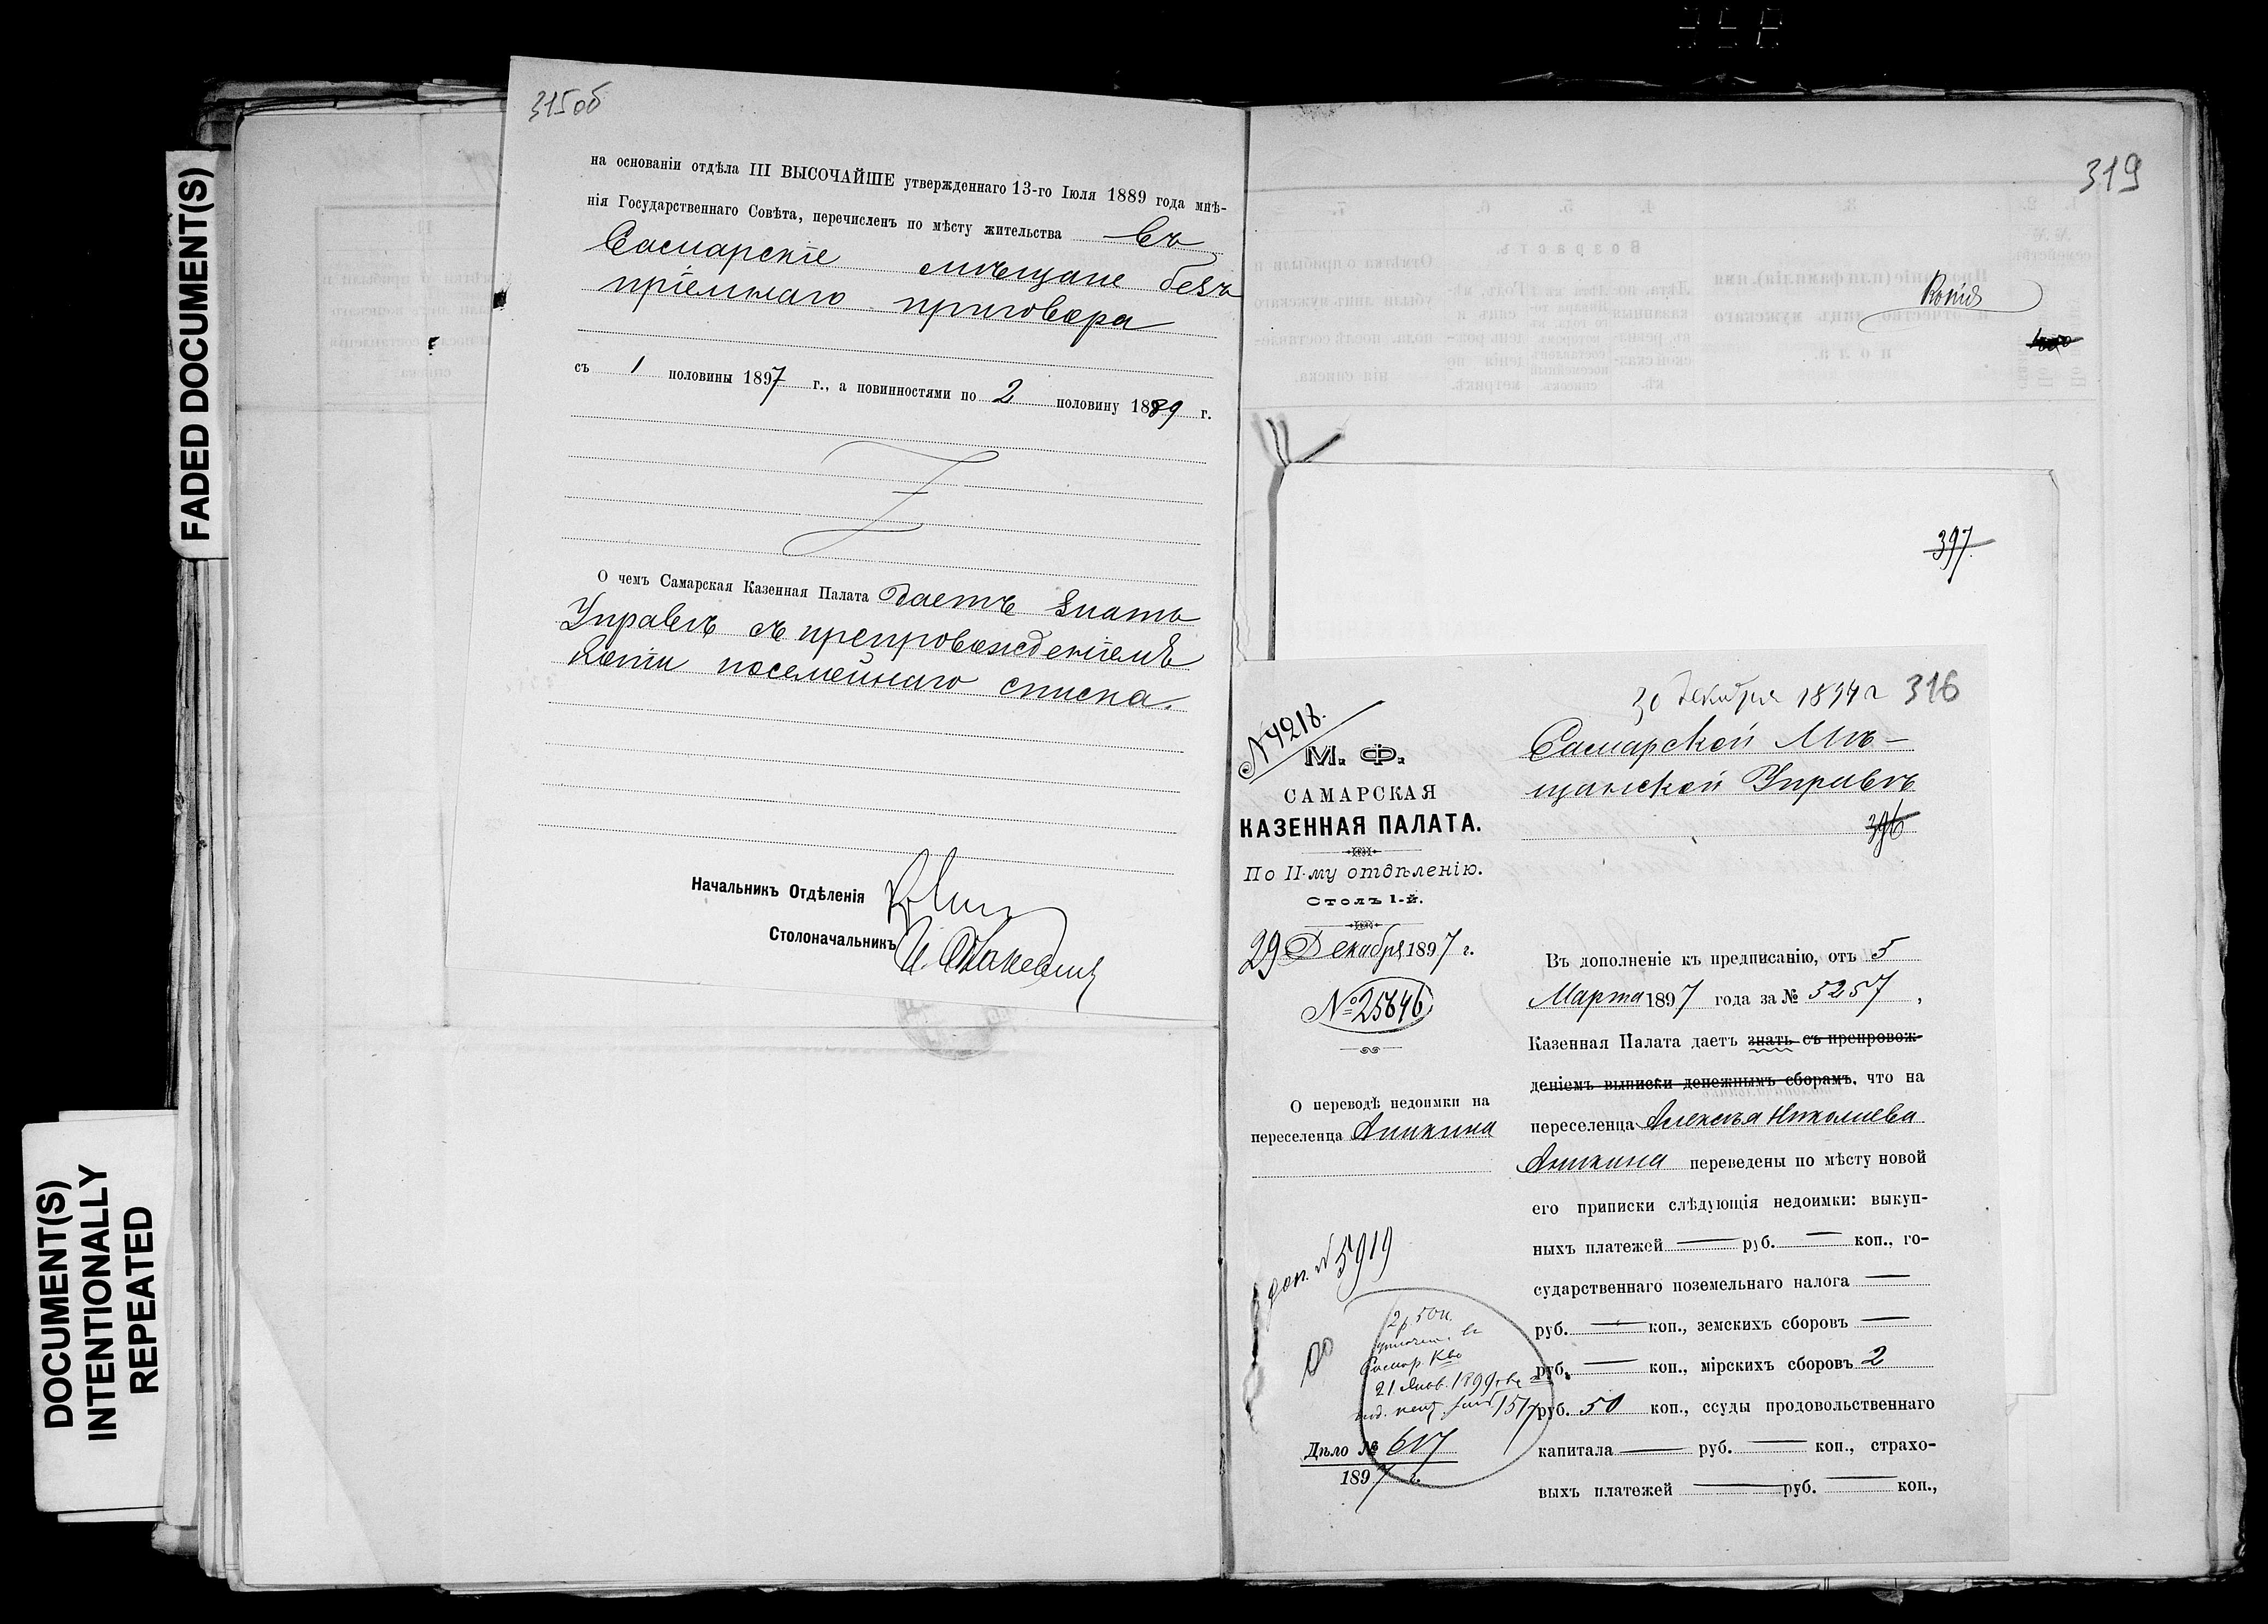 FADED DOCUMENT(S)
DOCUMENT(S)
INTENTIONALLY
REPEATED
315об
на основаніи отдѣла III ВЫСОЧАЙШЕ утвержденнаго 13-го Іюля 1889 года мнѣ-
нія Государственнаго Совѣта, перечисленъ по мѣсту жительства въ
Самарскіе мѣщане безъ
пріемнаго приговора
съ 1 половины 1897 г., а повинностями по 2 половину 1889 г.
О чемъ Самарская Казенная Палата даетъ знать
Управѣ съ препровожденіемъ
копіи посемейнаго списка.
Начальникъ Отдѣленія
Столоначальникъ
319
Копія
397.
30 декабря 1897 г 316
№ 4218.
М. Ф.
САМАРСКАЯ
КАЗЕННАЯ ПАЛАТА.
По II-му отдѣленію.
Столъ 1-й.
29 Декабря 1897 г.
№ 25646
О переводѣ недоимки на
переселенца Аникина
доп. № 5919
2 р. 50 к.
Самар. Кво
21 Янв. 1899
Дѣло № 617
1897 г.
Самарской Мѣ-
щанской Управѣ
396
Въ дополненіе къ предписанію, отъ 5
Марта 1897 года за № 5257,
Казенная Палата даетъ знать съ препровож-
деніемъ выписки денежнымъ сборамъ, что на
переселенца Алексѣя Николаева
Аникина переведены по мѣсту новой
его приписки слѣдующія недоимки: выкуп-
ныхъ платежей — руб. — коп., го-
сударственнаго поземельнаго налога —
руб. — коп., земскихъ сборовъ —
руб. — коп., мірскихъ сборовъ 2
руб. 50 коп., ссуды продовольственнаго
капитала — руб. — коп., страхо-
выхъ платежей — руб. — коп.,